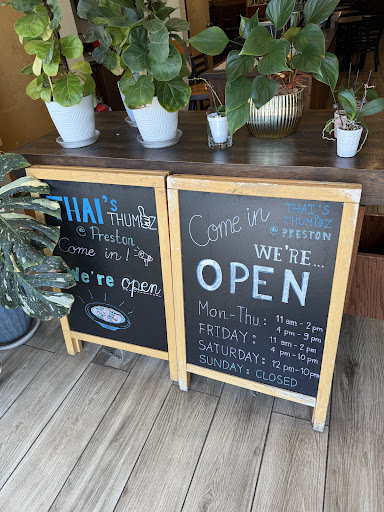 THAI's
THUMBZ
@ Preston
Come in!
We're open
Come in
THAI'S
THUMBZ
@ PRESTON
WE'RE...
OPEN
Mon-Thu: 11 am - 2 pm
4 pm - 9 pm
FRIDAY: 11 am - 2 pm
4 pm - 10 pm
SATURDAY: 12 pm-10 pm
SUNDAY: CLOSED